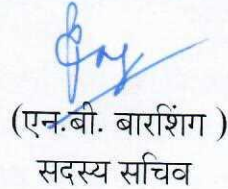 (एन.बी. बारशिंग )
सदस्य सचिव